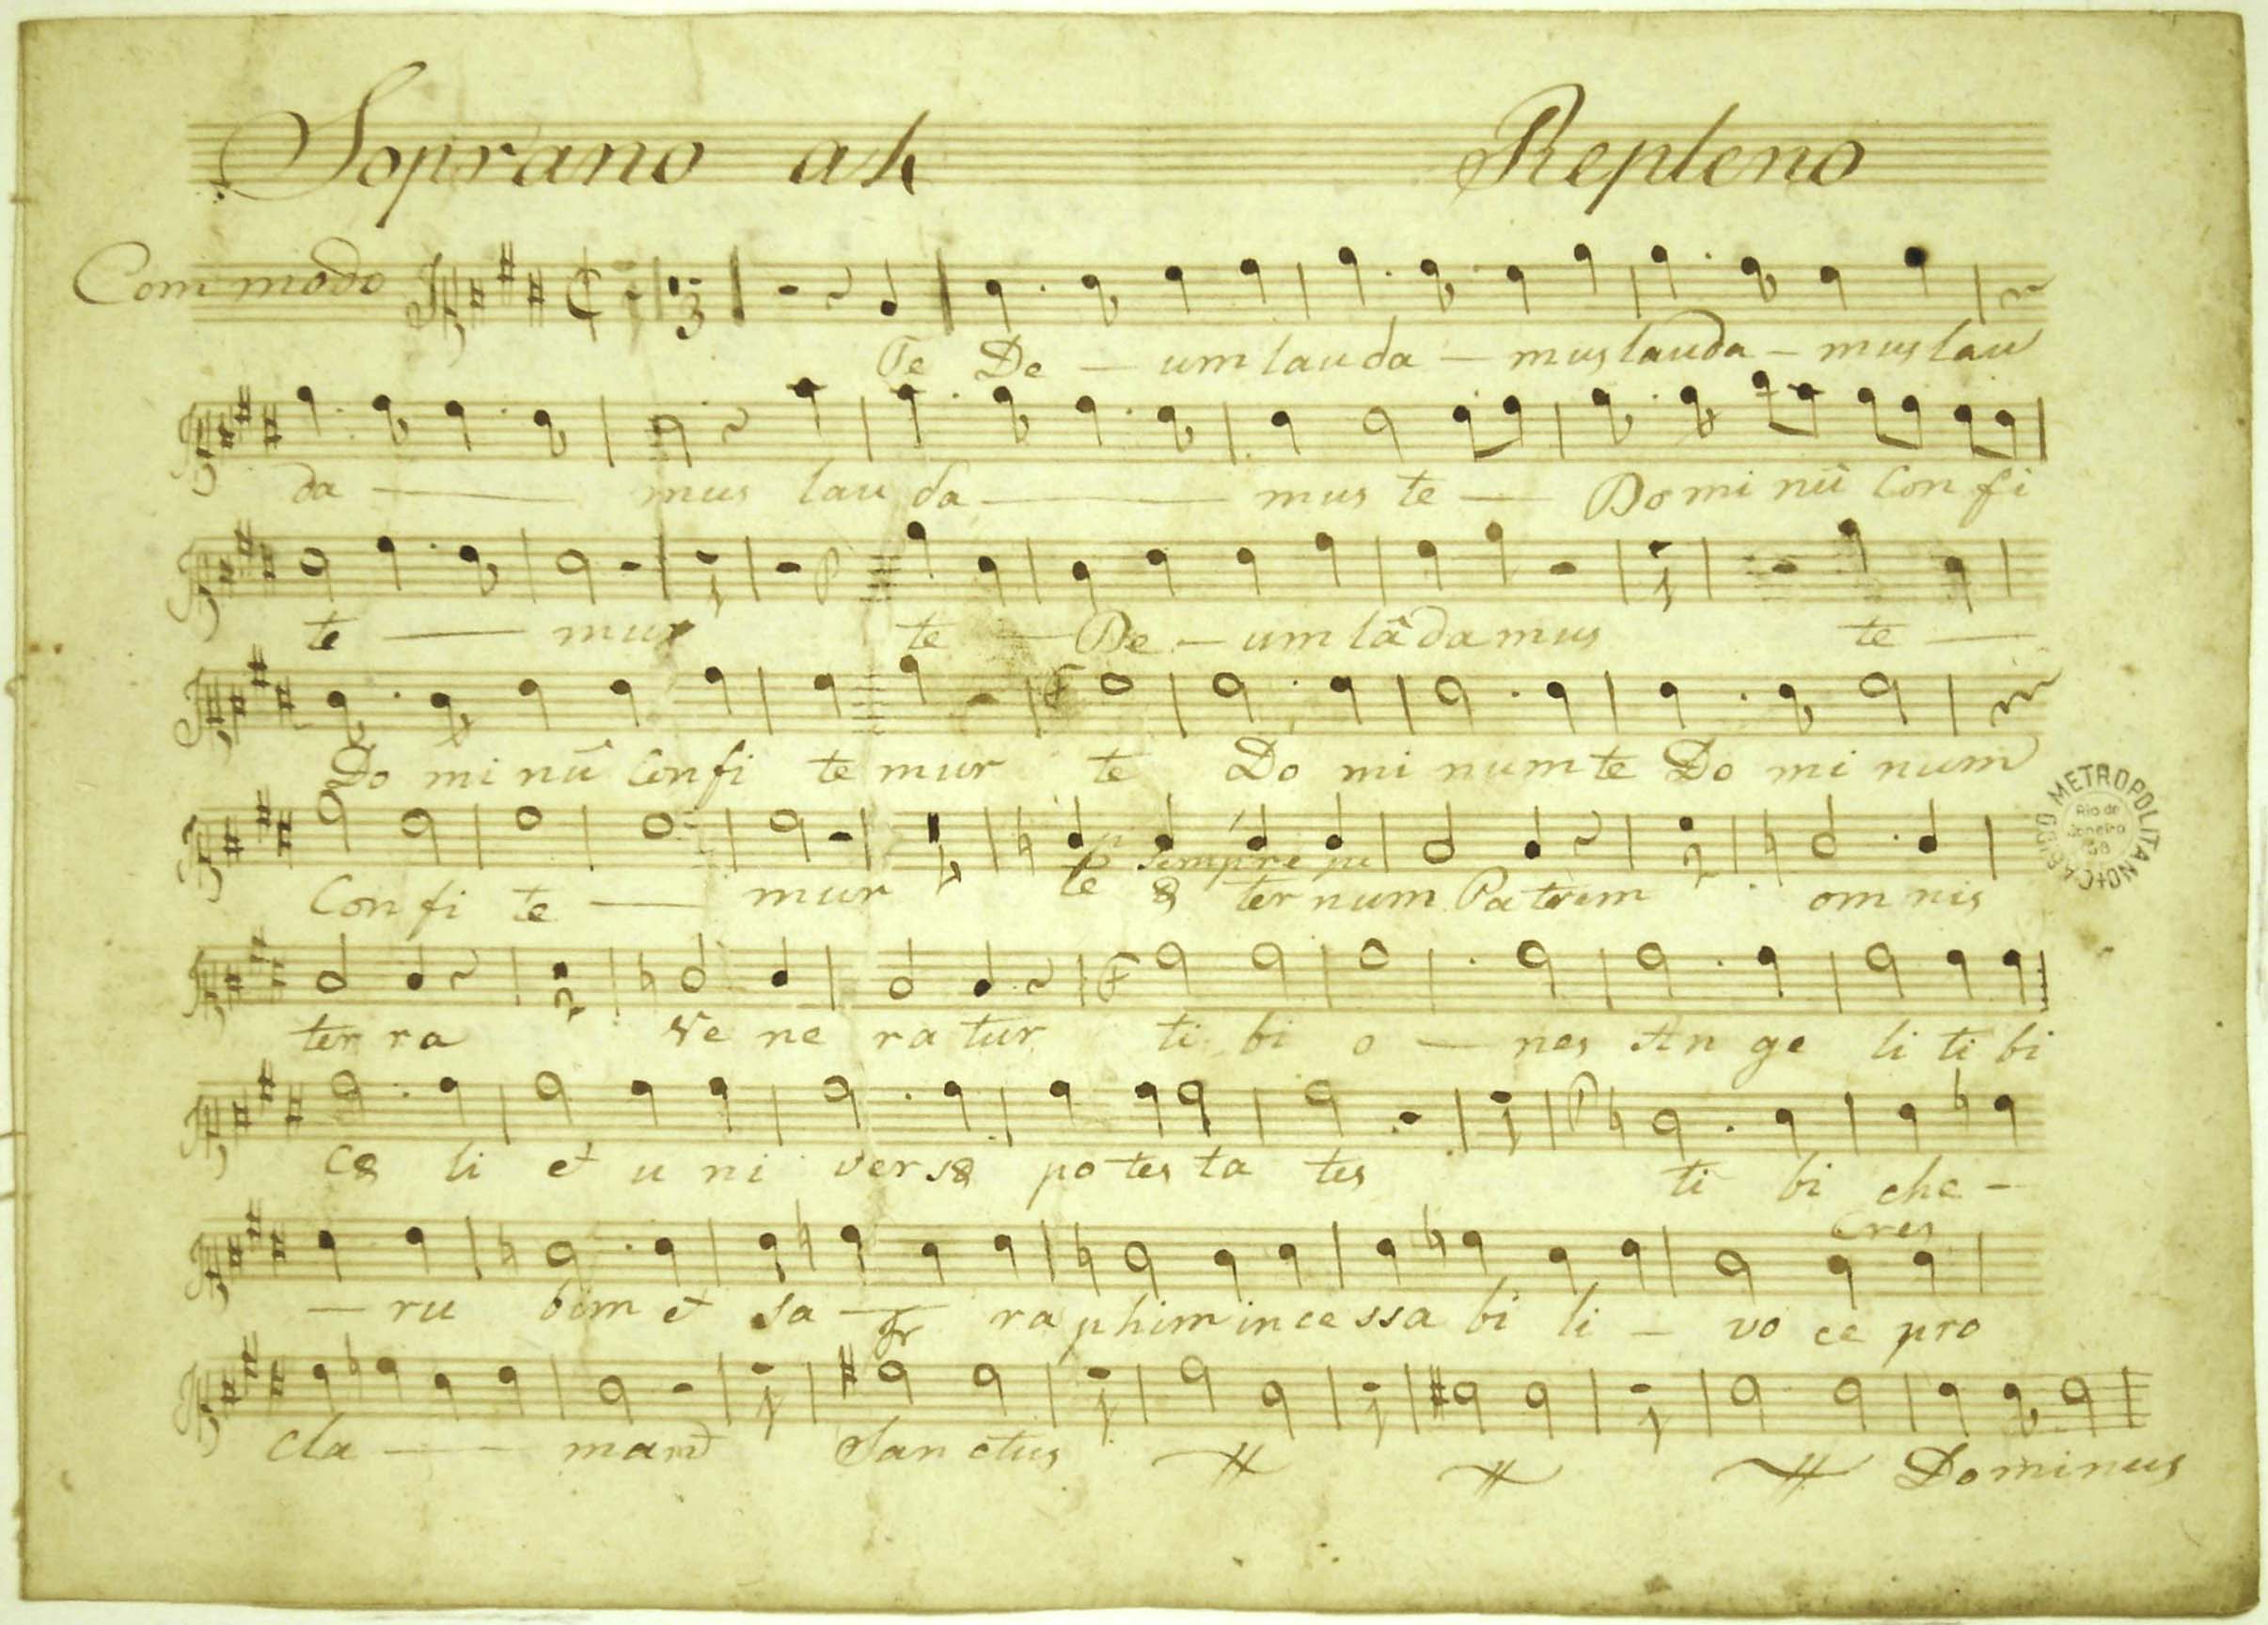 Soprano a 4 Repleno
Commodo
3
Te De - um lau da - mus lauda - mus lau
da - mus lau da - mus te - Do mi nũ Con fi
te - mur te - De - um lâ da mus te -
Do mi nũ Con fi te mur te Do mi num te Do mi num
Con fi te - mur te æ ter num Pa trem om nis
sempre p
ter ra Ve ne ra tur ti bi o - nes An ge li ti bi
2
Cæ li et u ni ver sæ po tes ta tes ti bi che -
Cres
- ru bim et sa - ra phim in ce ssa bi li - vo ce pro
cla - mant Sanctus Dominus
CABIDO METROPOLITANO
Rio de Janeiro